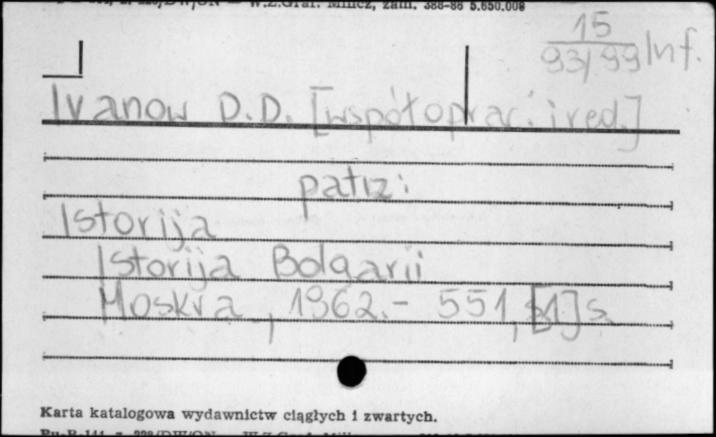 W.Z.Graf. Milicz, zam. 388-86 5.650.000
15
93/99 Inf.
Ivanow D.D. [współoprac. i red.]
patrz:
Istorija
Istorija Bolgarii
Moskva, 1962.- 551, [1] s.
Karta katalogowa wydawnictw ciągłych i zwartych.